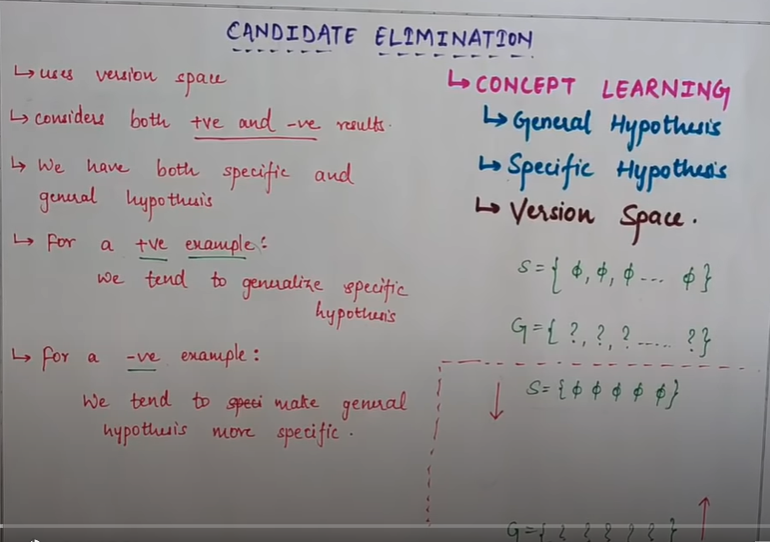 CANDIDATE ELIMINATION
↳ uses version space
↳ considers both +ve and -ve results.
↳ We have both specific and
general hypothesis
↳ For a +ve example:
We tend to generalize specific
hypothesis
↳ For a -ve example:
We tend to speci make general
hypothesis more specific.
↳ CONCEPT LEARNING
↳ General Hypothesis
↳ Specific Hypothesis
↳ Version Space.
S = { ϕ, ϕ, ϕ --- ϕ }
G = { ?, ?, ? ----- ? }
S = { ϕ ϕ ϕ ϕ ϕ }
G = { ? ? ? ? ? }